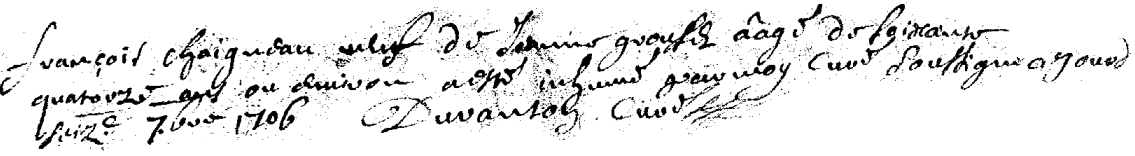 françois chaigneau veuf de Jeanne aâgé de soixante
quatorze ans ou environ a esté inhumé par moy Curé soussigné
seize 7bre 1706 Duvanton Curé